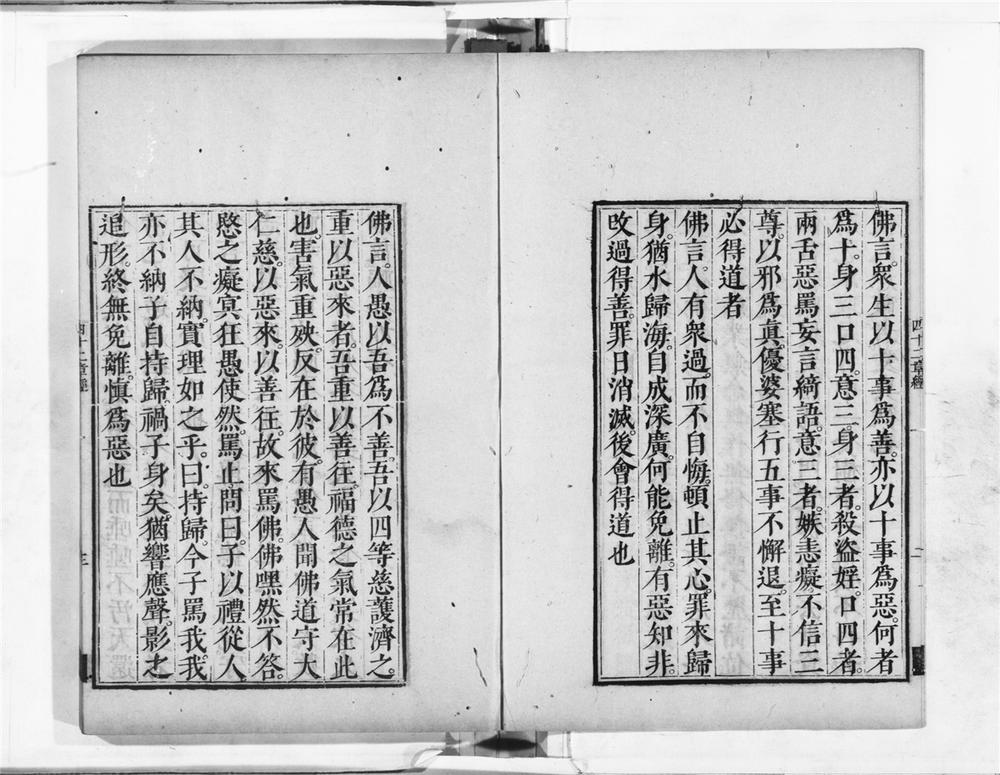 佛言。衆生以十事爲善。亦以十事爲惡。何者
爲十。身三口四。意三。身三者。殺盜婬。口四者。
兩舌惡罵妄言綺語。意三者。嫉恚癡。不信三
尊。以邪爲真。優婆塞行五事。不懈退。至十事
必得道者
佛言。人有衆過。而不自悔。頓止其心。罪來歸
身。猶水歸海。自成深廣。何能免離。有惡知非。
攺過得善。罪日消滅。後會得道也
四十二章經
二
佛言。人愚以吾爲不善。吾以四等慈護濟之。
重以惡來者。吾重以善往。福德之氣常在此
也。害氣重殃。反在於彼。有愚人聞佛道守大
仁慈。以惡來。以善往。故來罵佛。佛嘿然不答。
愍之癡冥狂愚使然。罵止問曰。子以禮從人
其人不納。實理如之乎。曰。持歸。今子罵我。我
亦不納。子自持歸禍子身矣。猶響應聲。影之
追形。終無免離。慎爲惡也
四十二章經
三